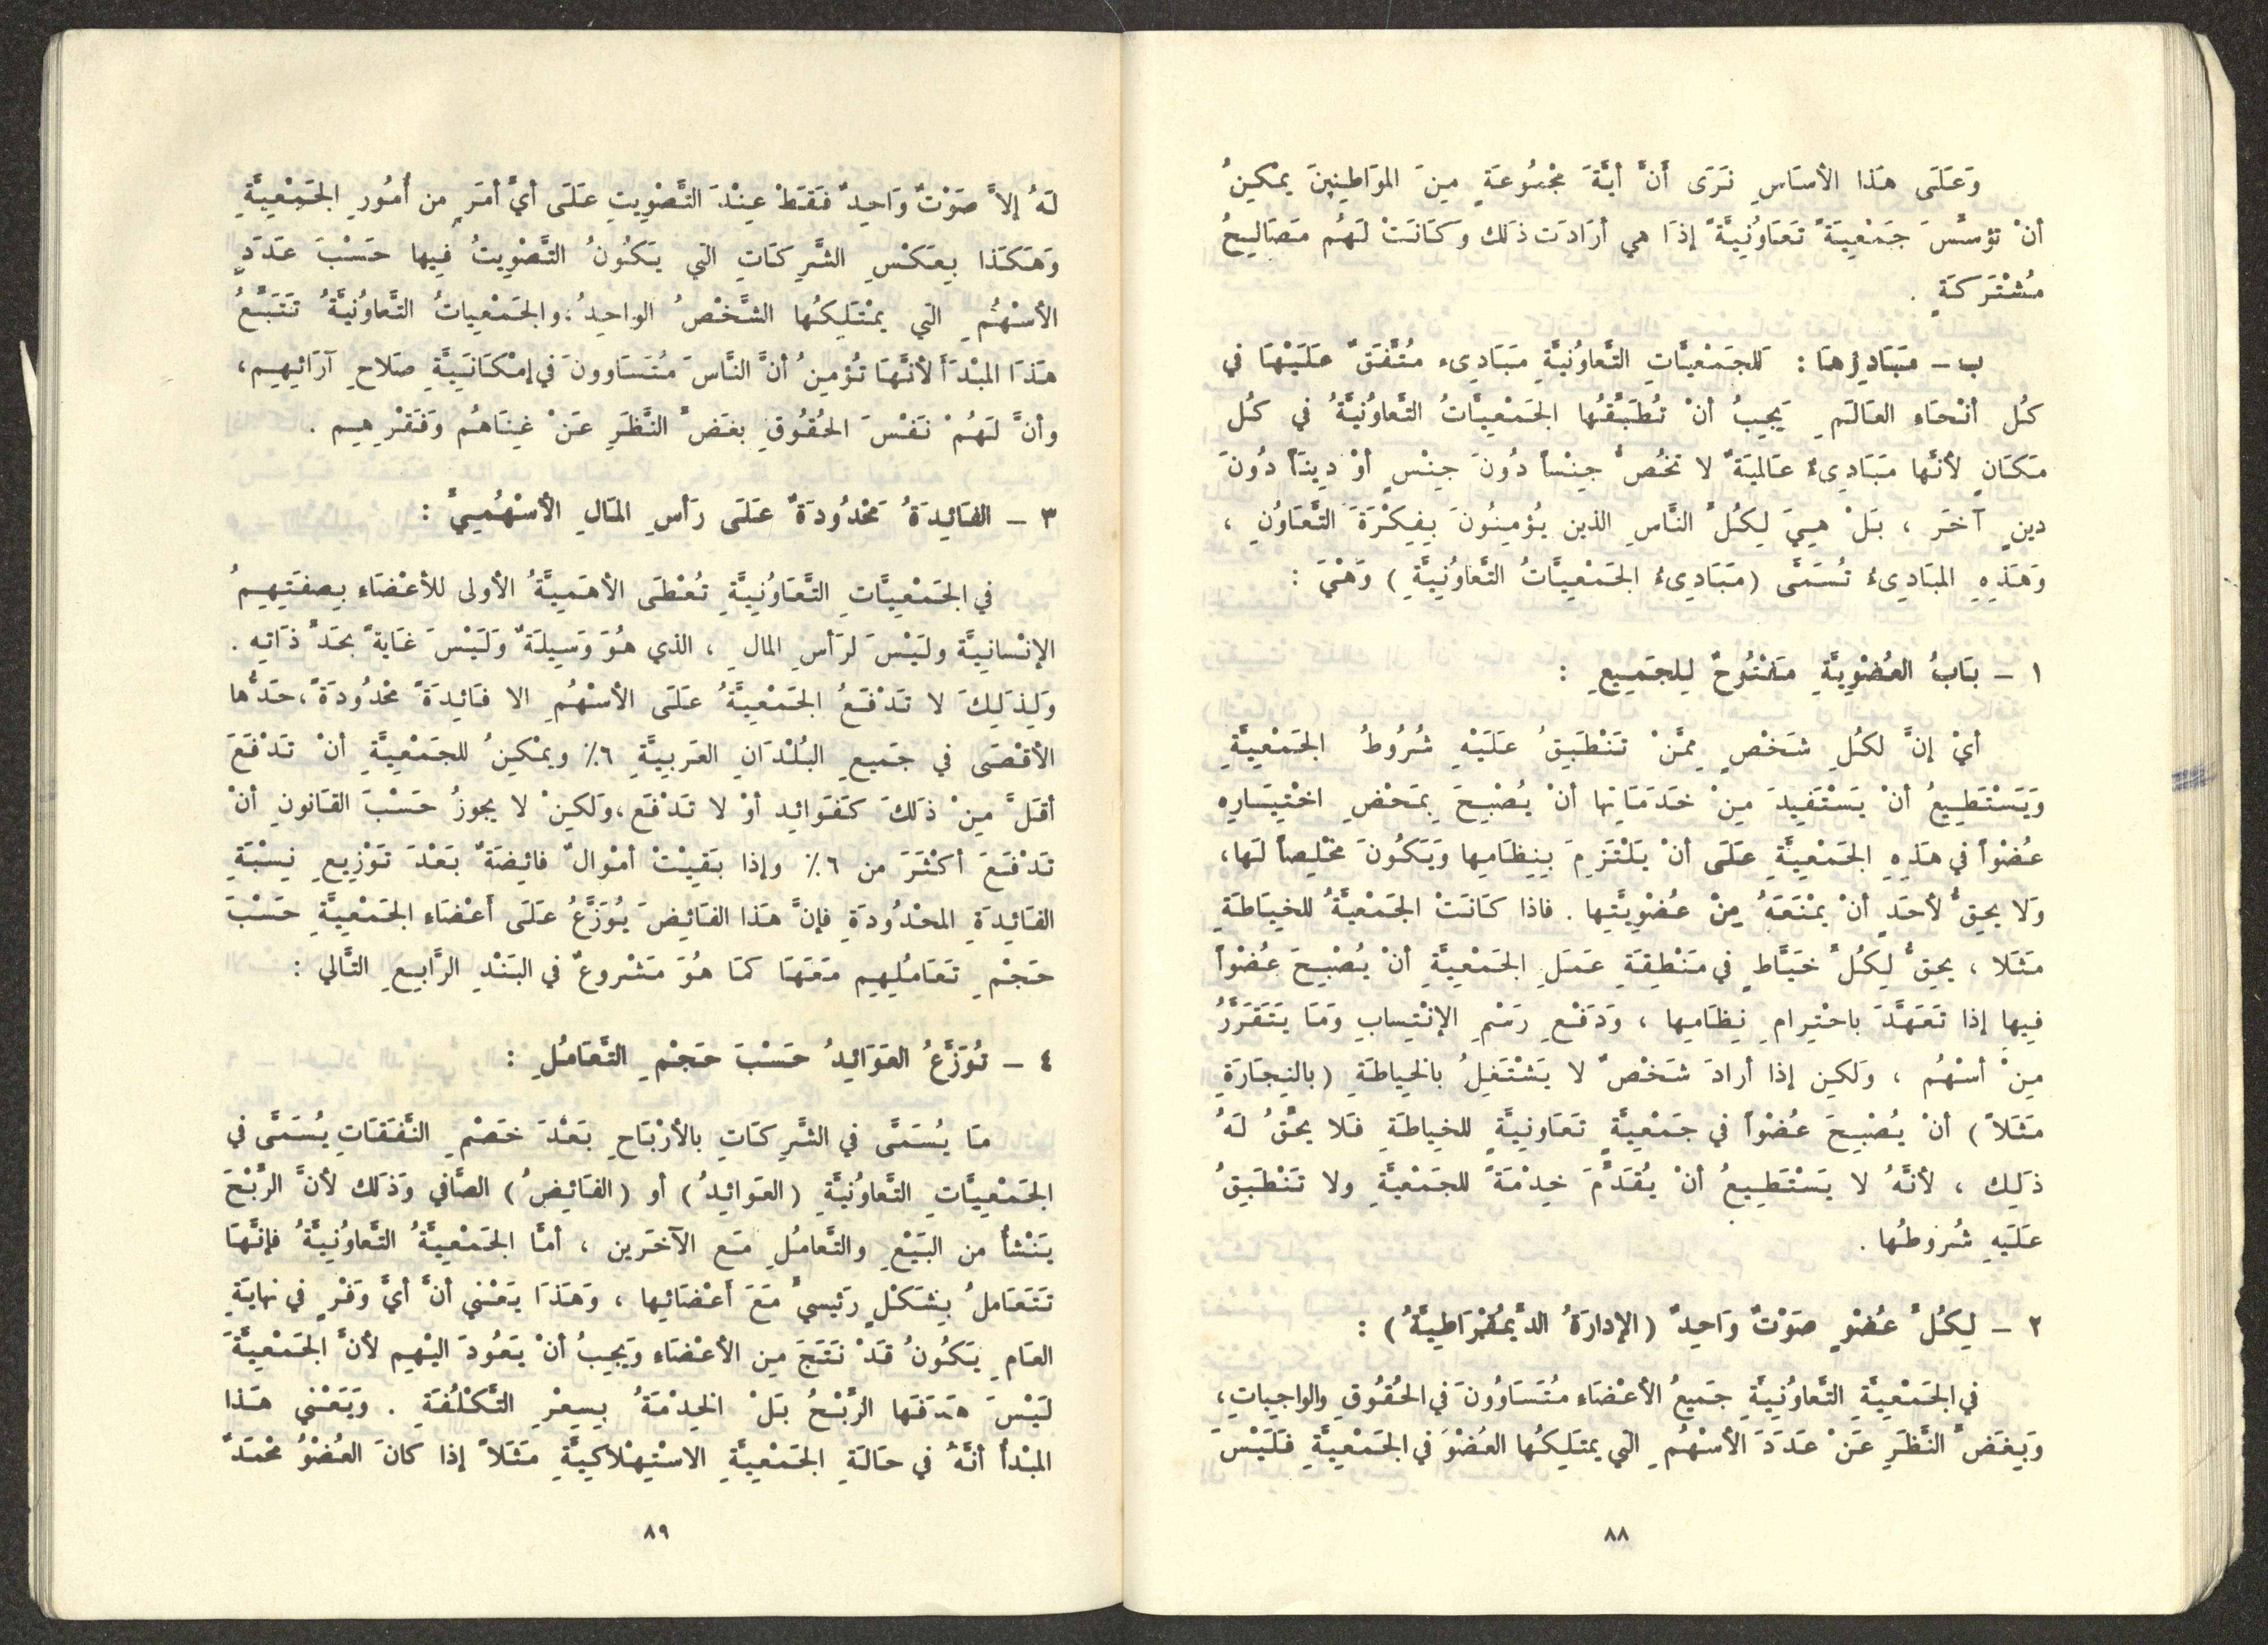 وَعَلَى هَذا الأسَاسِ نَرَى أنَّ أيَّةَ مجْمُوعَةٍ مِنَ الموَاطِنِينَ يمْكِنُ
أنْ تؤسِّسَ جَمْعِيَةً تَعَاوُنِيَّةً إذَا هي أرَادَت ذلَك وَكَانَتْ لَهُم مَصَالِحُ
مُشْتَرَكَةٍ .
ب - مَبَادِؤهَا : لَلجَمْعيَّاتِ التَّعاوُنيَّةِ مَبَادِىء مُتَّفَقٌ عَلَيْهَا في
كُل أنْحَاء العَالَمِ يَجِبُ أنْ تُطَبِّقُها الجَمْعِيَّاتُ التَّعاوُنيَّةُ في كُل
مَكَانٍ لأنَّها مَبَادِىءُ عَالميَةٌ لا تخُصُّ جِنْساً دُونَ جِنسٍ أوْ دِيناً دُونَ
دينٍ آخَر ، بَلْ هِيَ لِكُلِّ النَّاسِ الذين يُؤمِنُونَ بِفِكْرَةَ التَّعَاوُنِ ،
وَهَذِهِ المبَادِىءُ تُسَمَّى (مَبَادِىءُ الجَمْعِيَّاتُ التَّعاوُنِيَّةِ) وَهْيَ :
١ - بَابُ العُضْوِيَّةِ مَفْتُوحٌ لِلجَمِيعِ :
أيْ إنَّ لكُلِ شَخْصٍ مِمَّنْ تَنْطَبِقُ عَلَيْهِ شُرُوطُ الجَمْعِيَّةِ
وَيَسْتَطِيعُ أنْ يَسْتَفِيدَ مِنْ خَدَمَاتِها أنْ يُصْبِحَ بمَحْضِ اخْتِيَارِهِ
عُضْواً في هَذِهِ الجَمْعِيَّةِ عَلَى أنْ يَلْتَزِمَ بِنِظَامِها وَيَكُونَ مخْلِصاً لَها،
وَلا يحِقُّ لأحَدٍ أنْ يمْنَعَهُ مِنْ عُضْوِيَّتِها . فاذا كَانَتْ الجَمْعيَّةُ للخيَاطَةِ
مَثَلا ، يحِقُّ لِكُلِّ خَيَّاطٍ في مَنْطِقَةِ عَمَلِ الجَمْعِيَّةِ أنْ يُصْبِحَ عُضْواً
فيهِا إذا تَعَهَّدَ باحْتِرامِ نِظَامِها ، وَدَفْعِ رَسْمِ الإنْتِسابِ وَمَا يَتَقَرَّرُ
مِنْ أسْهُم ، وَلَكِن إذا أرادَ شَخْصٌ لا يَشْتَغِلُ بالخياطَةِ (بالنِجَارَةِ
مَثَلاً) أنْ يُصْبِحَ عُضْواً في جَمْعِيَّةٍ تَعَاونِيَّةٍ للخِياطَةِ فَلا يحقُّ لَهُ
ذلَكِ ، لأنَّهُ لا يَسْتَطِيعُ أنْ يُقدِّمَ خِدْمَةً للجَمْعيَّةِ ولا تَنْطَبِقُ
عَلَيهِ شُرُوطُها .
٢ - لِكُلِّ عُضْوٍ صَوْتٌ وَاحِدٌ (الإدارَةُ الدِّيمُقْرَاطيَّةُ) :
في الجَمْعِيَّةِ التَّعاوُنِيَّةِ جَميعُ الأعْضَاء مُتَسَاوُونَ في الحُقُوقِ والواجِباتِ،
وَبِغَضِّ النَّظَرِ عَنْ عَدَدَ الأسْهُمِ التي يمتَلِكُها العُضْوَ في الجَمْعِيَّةِ فَلَيْسَ
٨٨
لَهُ إلاَّ صَوْتٌ وَاحِدٌ فَقَطْ عِنْدَ التَّصْوِيتِ عَلَى أيِّ أمَرٍ من أُمُورِ الجَمْعِيَّةِ
وَهَكَذا بِعَكْسِ الشَّرِكَاتِ التي يَكُونُ التَّصْوِيتُ فيها حَسْبَ عَدَدِ
الأسْهُمِ التي يمْتَلِكُها الشَّخْصُ الواحِدُ؛ والجَمْعِياتُ التَّعاوُنيَّةُ تَتَبَّعُ
هَذَا المبْدَأ لأنَّهَا تُؤمِنُ أنَّ النَّاسَ مُتَسَاوونَ في إمْكَانَيَّةِ صَلاحِ آرَائِهِم،
وأنَّ لَهُمْ نَفْسَ الحُقُوقِ بغَضِّ النَّظَرِ عَنْ غِنَاهُم وَفَقْرِهِم .
٣ - الفَائِدَةُ مَحْدُودَةٌ عَلَى رَأسِ المَالِ الأسْهُمِيِّ :
في الجَمْعِيَّاتِ التَّعَاوُنِيَّةِ تُعْطَى الأهَمِيَّةُ الأولى للأعْضَاء بِصفَتِهِمُ
الإنْسانِيَّة ولَيْسَ لرَأسِ المالِ ، الذي هُوَ وَسِيلَةٌ وَلَيْسَ غَايةً بحَدِّ ذَاتِه .
وَلِذلِكَ لا تَدْفَعُ الجَمْعِيَّةُ عَلَى الأسْهُمِ الا فَائِدَةً محْدُودَةً، حَدُّها
الأقْصَى في جَميعِ البُلْدَانِ العَرَبِيَّةِ ٦٪ ويمْكِنُ للجَمْعِيَّةِ أنْ تَدْفَعَ
أقَلَّ مِنْ ذَلكَ كَفَوائِد أوْ لا تَدْفَع، وَلَكِنْ لا يجوزُ حَسْبَ القَانونِ أنْ
تَدْفَعَ أكْثَرَ من ٦٪ وإذا بَقِيْتْ أمْوالٌ فائِضَةٌ بَعْدَ تَوْزِيعِ نِسْبَةِ
الفَائِدَةِ المحْدُودَةِ فإنَّ هَذا الفَائِضَ يُوَزَّعُ عَلَى أعْضَاء الجَمْعِيَّةِ حَسْبَ
حَجْمِ تَعَامُلِهِم مَعَهَا كمَا هُوَ مَشْروعٌ في البَنْدِ الرَّابِعِ التَّالي :
٤ - تُوَزَّعُ العَوَائِدُ حَسْبَ حَجْمِ التَّعَامُلِ :
مَا يُسَمَّى في الشَّرِكَاتِ بالأرْبَاحِ بَعْدَ خَصْمِ النَّفَقَاتِ يُسَمَّى في
الجَمْعِيَّاتِ التَّعاوُنيَّةِ (العَوائِدُ) أو (الفَائِضُ) الصَّافي وَذلَك لأنَّ الرِّبْحَ
يَنْشأ من البَيْعِ والتَّعامُلِ مَع الآخَرين ، أمَّا الجَمْعِيَّةُ التَّعاوُنِيَّةُ فإنَّهَا
تَتَعَامَلُ بِشَكْلٍ رَئيسيٍّ مَعَ أعْضَائِها ، وَهَذَا يَعْني أنَّ أيَّ وَفْرٍ في نهايَةِ
العَامِ يَكُونُ قَدْ نَتَجَ من الأعْضَاء وَيَجِبُ أنْ يَعُودَ اليْهِم لأنَّ الجَمْعِيَّةَ
لَيْسَ هَدَفَها الرِّبْحُ بَلْ الخِدْمَةُ بِسِعْرِ التَّكْلُفَةِ . وَيَعْني هَذا
المبْدأ أنَّهُ في حَالَةِ الجَمْعِيَّةِ الاسْتِهْلاكِيَّةِ مَثَلاً إذا كَانَ العُضْوُ محْمَدٌ
٨٩